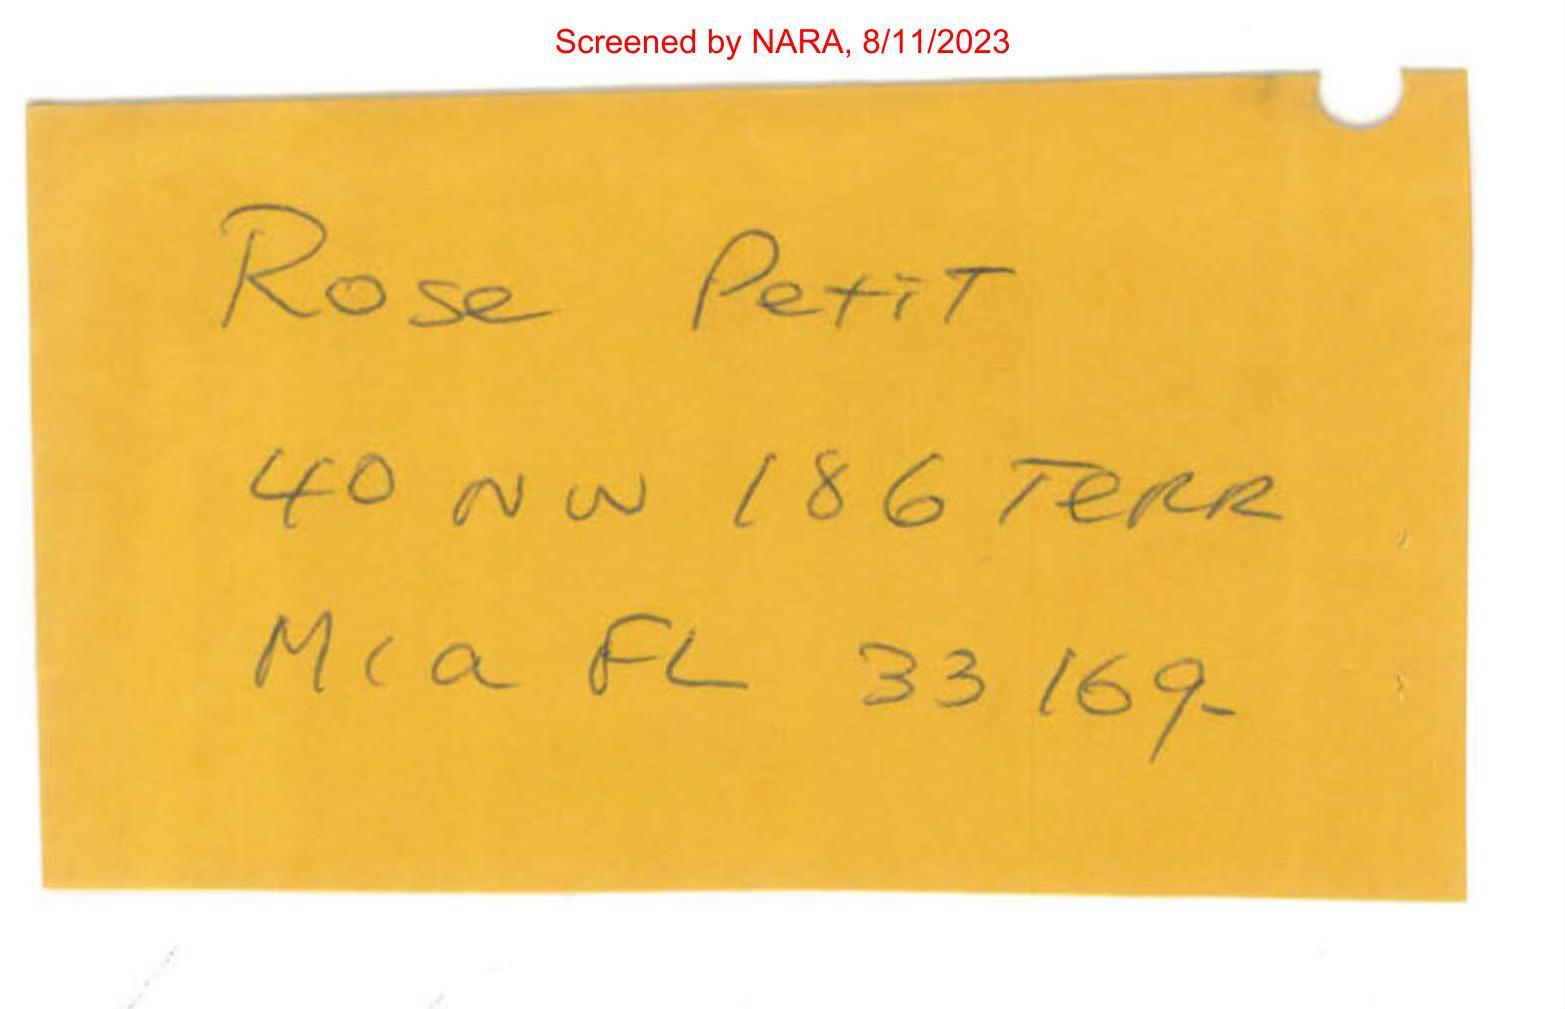 Screened by NARA, 8/11/2023
Rose Petit
40 NW 186 Terr
Mia FL 33169-